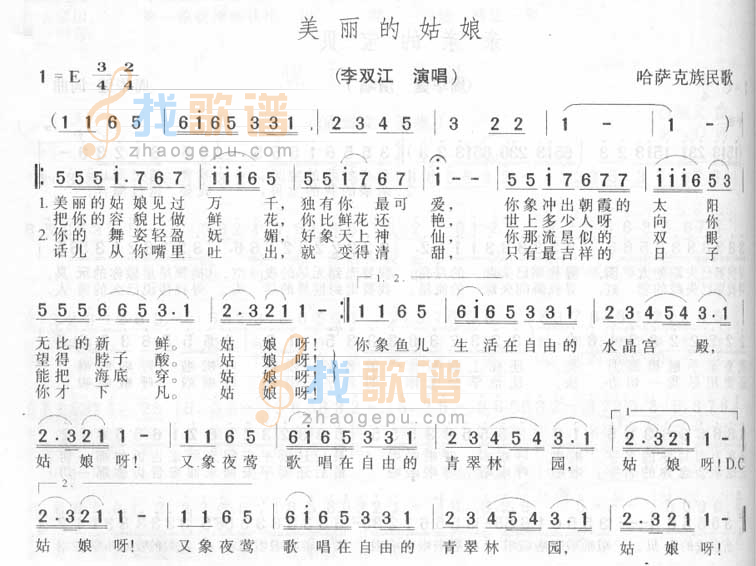 美丽的姑娘
1=E 3/4 2/4 (李双江 演唱) 哈萨克族民歌
(1 1 6 5 | 6 i 6 5 3 3 1 | 2 3 4 5 | 3 2 2 | 1 - | 1 -)
5 5 5 i. 7 6 7 | i i i 6 5 | 5 5 i 7 6 7 | i - | 5 5 5 i 7 6 7 | i i i 6 5 3
1. 美丽的姑娘见过 万 千, 独有你 最可 爱, 你象冲出朝霞的 太 阳
把你的容貌比做 鲜 花, 你比鲜花还 艳, 世上多少人呀 向 你
2. 你的 舞姿轻盈 妩 媚, 好象天上神 仙, 你那流星似的 双 眼
话儿 从你嘴里 吐 出, 就 变得清 甜, 只有最吉祥的 日 子
无比的新 鲜。 姑 娘呀! 你象鱼儿 生活在自由的 水晶宫 殿,
望得 脖子 酸。 姑 娘呀!
能把 海底 穿。 姑 娘呀!
你才 下 凡。 姑 娘呀!
2.3 2 1 1 - | 1 1 6 5 | 6 i 6 5 3 3 1 | 2 3 4 5 4 3 . 1 | 2.3 2 1 1 -
姑 娘呀! 又象夜莺 歌唱在自由的 青翠林 园, 姑 娘呀! D.C
2.
2.3 2 1 1 - | 1 1 6 5 | 6 i 6 5 3 3 1 | 2 3 4 5 4 3 . 1 | 2.3 2 1 1 -
姑 娘呀! 又象夜莺 歌唱在自由的 青翠林 园, 姑 娘呀!
找歌谱
zhaogepu.com
找歌谱
zhaogepu.com